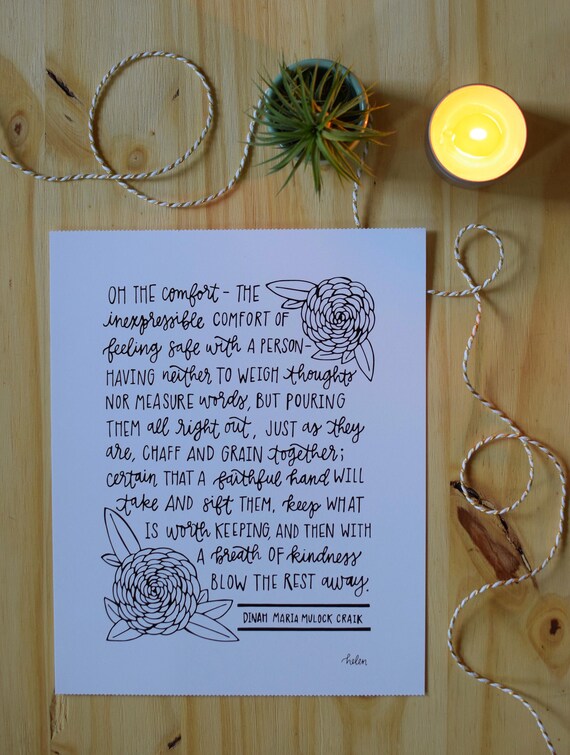 OH THE comfort - THE
inexpressible COMFORT OF
feeling safe with A PERSON-
HAVING neither TO WEIGH thoughts
NOR MEASURE words, BUT POURING
THEM all right out, JUST as they
are, CHAFF AND GRAIN together;
certain THAT A faithful hand WILL
take AND sift THEM, keep WHAT
IS worth KEEPING, AND THEN WITH
A breath OF kindness
BLOW THE REST away.
DINAH MARIA MULOCK CRAIK
helen